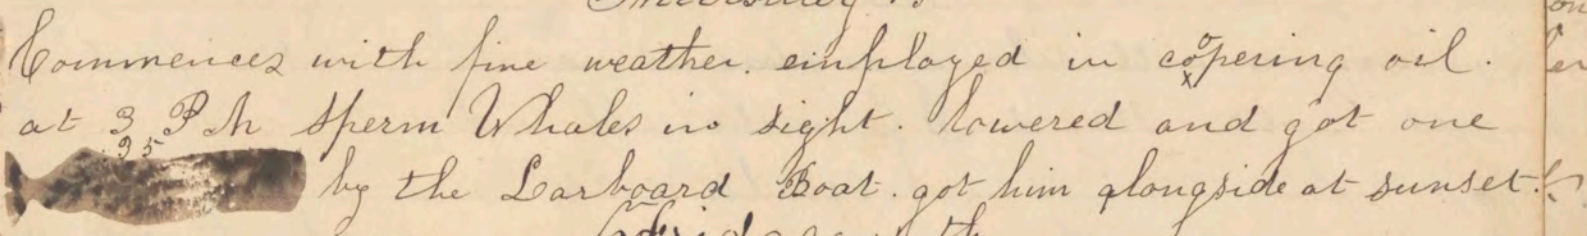 Commences with fine weather. employed in coopering oil.
at 3 P M Sperm Whales in sight. lowered and got one
35
by the Larboard Boat. got him alongside at sunset.